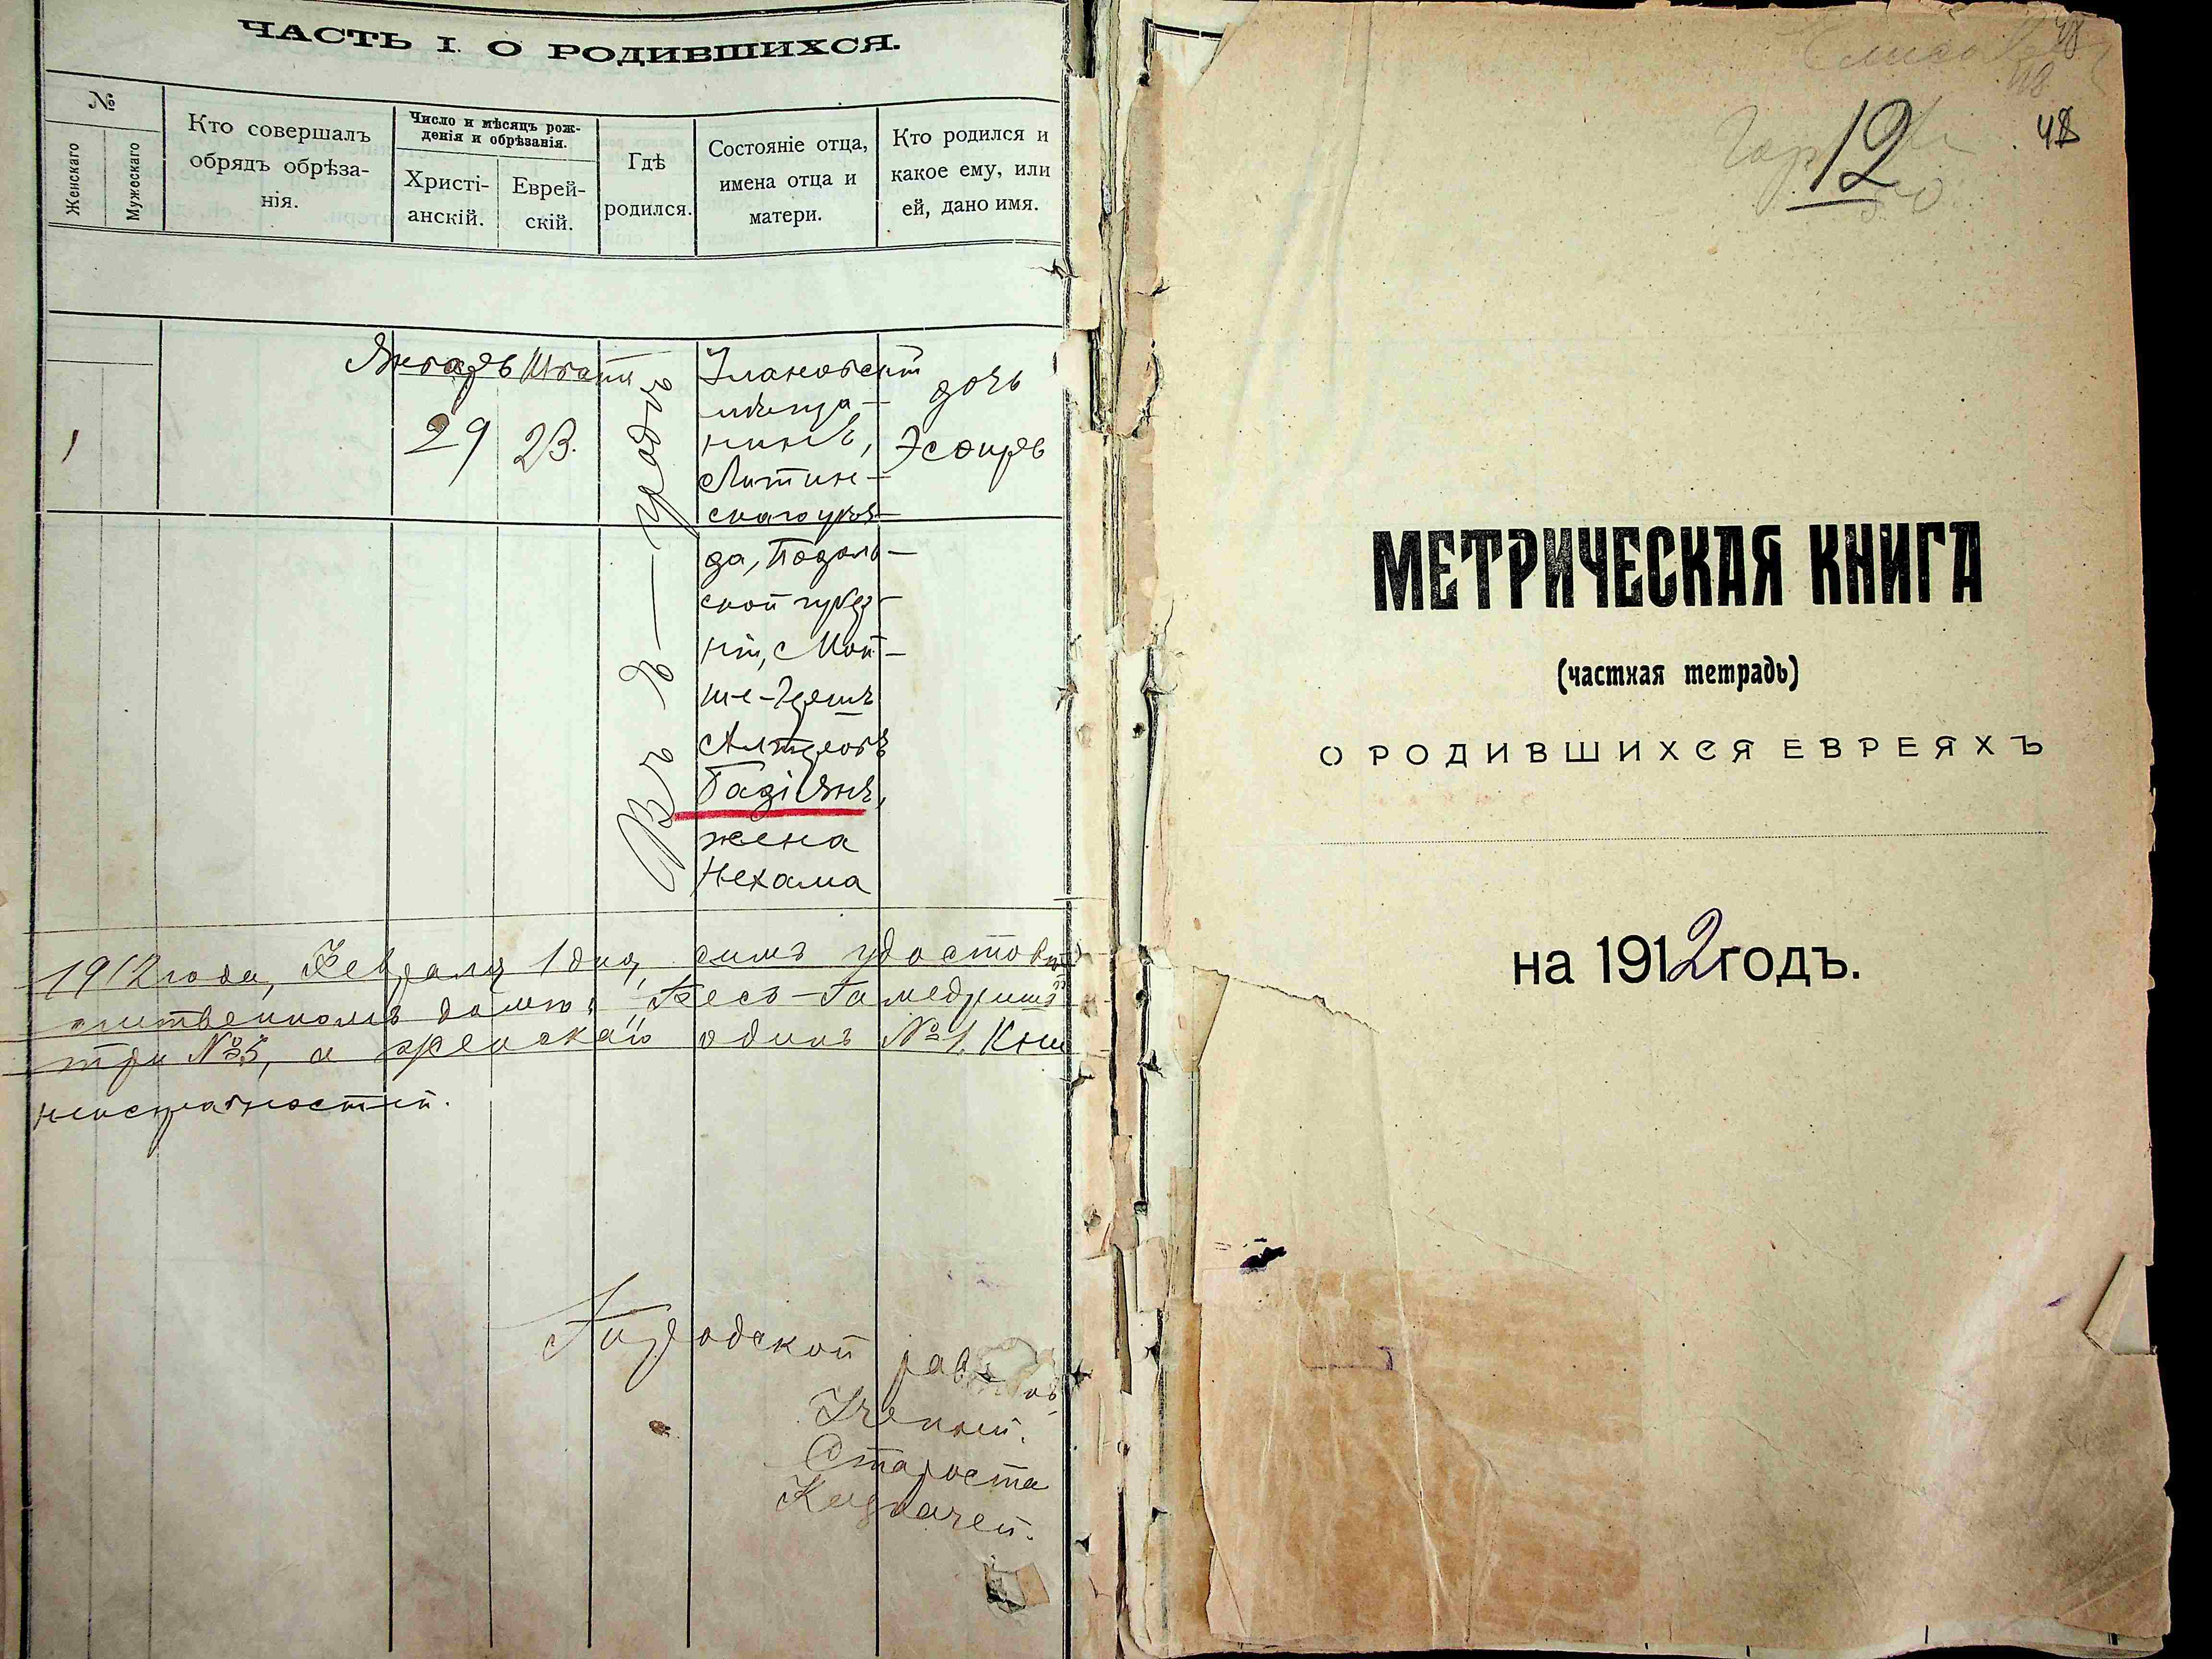 ЧАСТЬ I. О РОДИВШИХСЯ.
№
Женскаго
Мужескаго
Кто совершалъ
обрядъ обрѣза-
нія.
Число и мѣсяцъ рож-
денія и обрѣзанія.
Христі-
анскій.
Еврей-
скій.
Гдѣ
родился.
Состояніе отца,
имена отца и
матери.
Кто родился и
какое ему, или
ей, дано имя.
1
Январь
29
Шватъ
23.
Улановскій
мѣща-
нинъ,
Литин-
скаго уѣз-
да, Подоль-
ской губер-
ніи, Мой-
ше-
жена
Нехама
дочь
Эсѳирь
1912 года, Февраля 1 дня, симъ удостовѣ
молитвенномъ домѣ "Бесъ-Гамедришъ"
три №3, а женскаго одинъ №1. Кни
неисправностей.
Городской раввинъ
Ученый.
Староста
Казначей.
48
12
48
МЕТРИЧЕСКАЯ КНИГА
(частная тетрадь)
О РОДИВШИХСЯ ЕВРЕЯХЪ
на 1912 годъ.